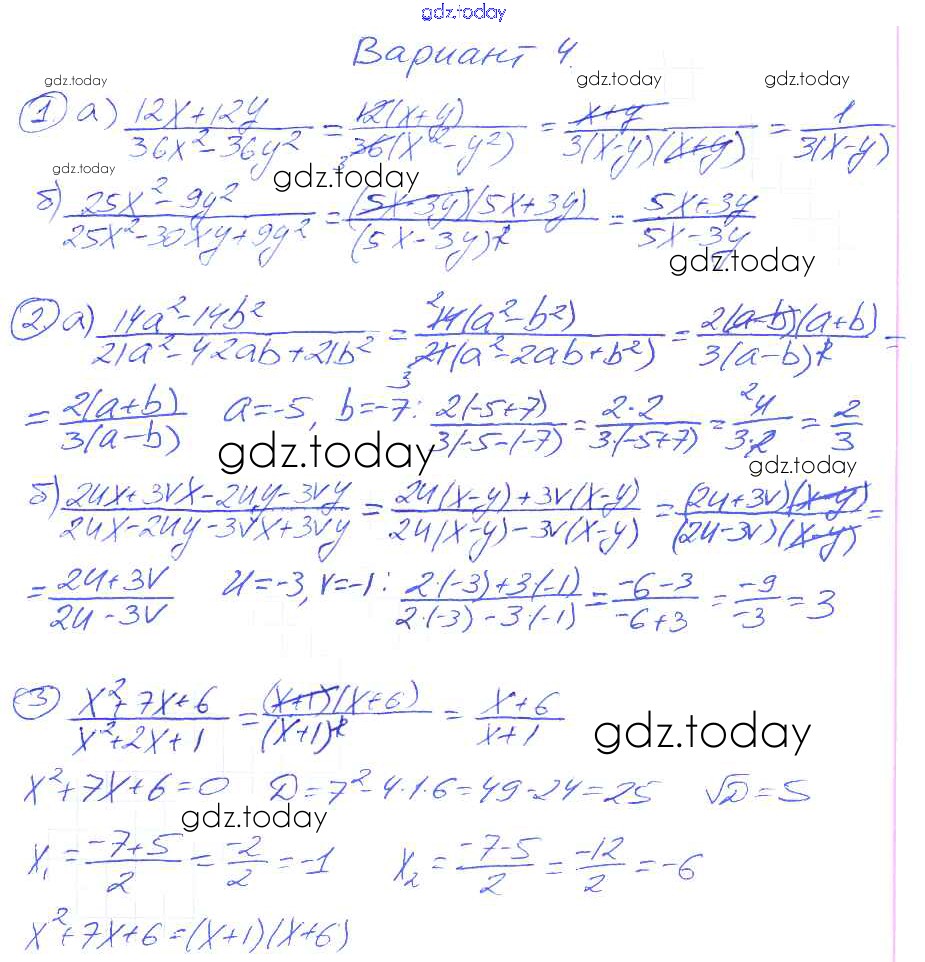 gdz.today
Вариант 4
gdz.today gdz.today gdz.today
① а) (12x+12y)/(36x²-36y²) = (12(x+y))/(36(x²-y²)) = (x+y)/(3(x-y)(x+y)) = 1/(3(x-y))
3
gdz.today gdz.today
б) (25x²-9y²)/(25x²-30xy+9y²) = ((5x-3y)(5x+3y))/((5x-3y)²) = (5x+3y)/(5x-3y)
gdz.today
② а) (14a²-14b²)/(21a²-42ab+21b²) = (²14(a²-b²))/(₃21(a²-2ab+b²)) = (2(a-b)(a+b))/(3(a-b)²) =
= (2(a+b))/(3(a-b)) a=-5, b=-7: (2(-5+7))/(3(-5-(-7)) = (2·2)/(3·(-5+7)) = (²4)/(3·2) = 2/3
gdz.today gdz.today
б) (2ux+3vx-2uy-3vy)/(2ux-2uy-3vx+3vy) = (2u(x-y)+3v(x-y))/(2u(x-y)-3v(x-y)) = ((2u+3v)(x-y))/((2u-3v)(x-y)) =
= (2u+3v)/(2u-3v) u=-3, v=-1: (2·(-3)+3·(-1))/(2·(-3)-3·(-1)) = (-6-3)/(-6+3) = (-9)/(-3) = 3
③ (x²+7x+6)/(x²+2x+1) = ((x+1)(x+6))/((x+1)²) = (x+6)/(x+1)
gdz.today
x²+7x+6=0 D=7²-4·1·6=49-24=25 √D=5
gdz.today
x₁ = (-7+5)/2 = (-2)/2 = -1 x₂ = (-7-5)/2 = (-12)/2 = -6
x²+7x+6=(x+1)(x+6)